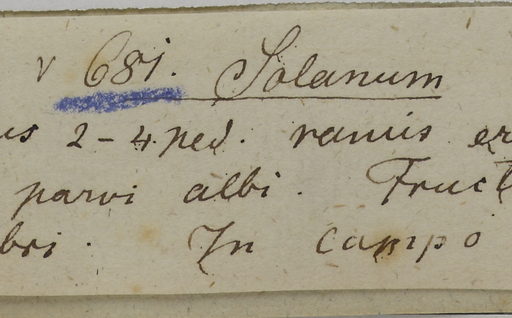 v 681. Solanum
us 2-4 ped. ramis er
parvi albi. Fruct
bri. In campo